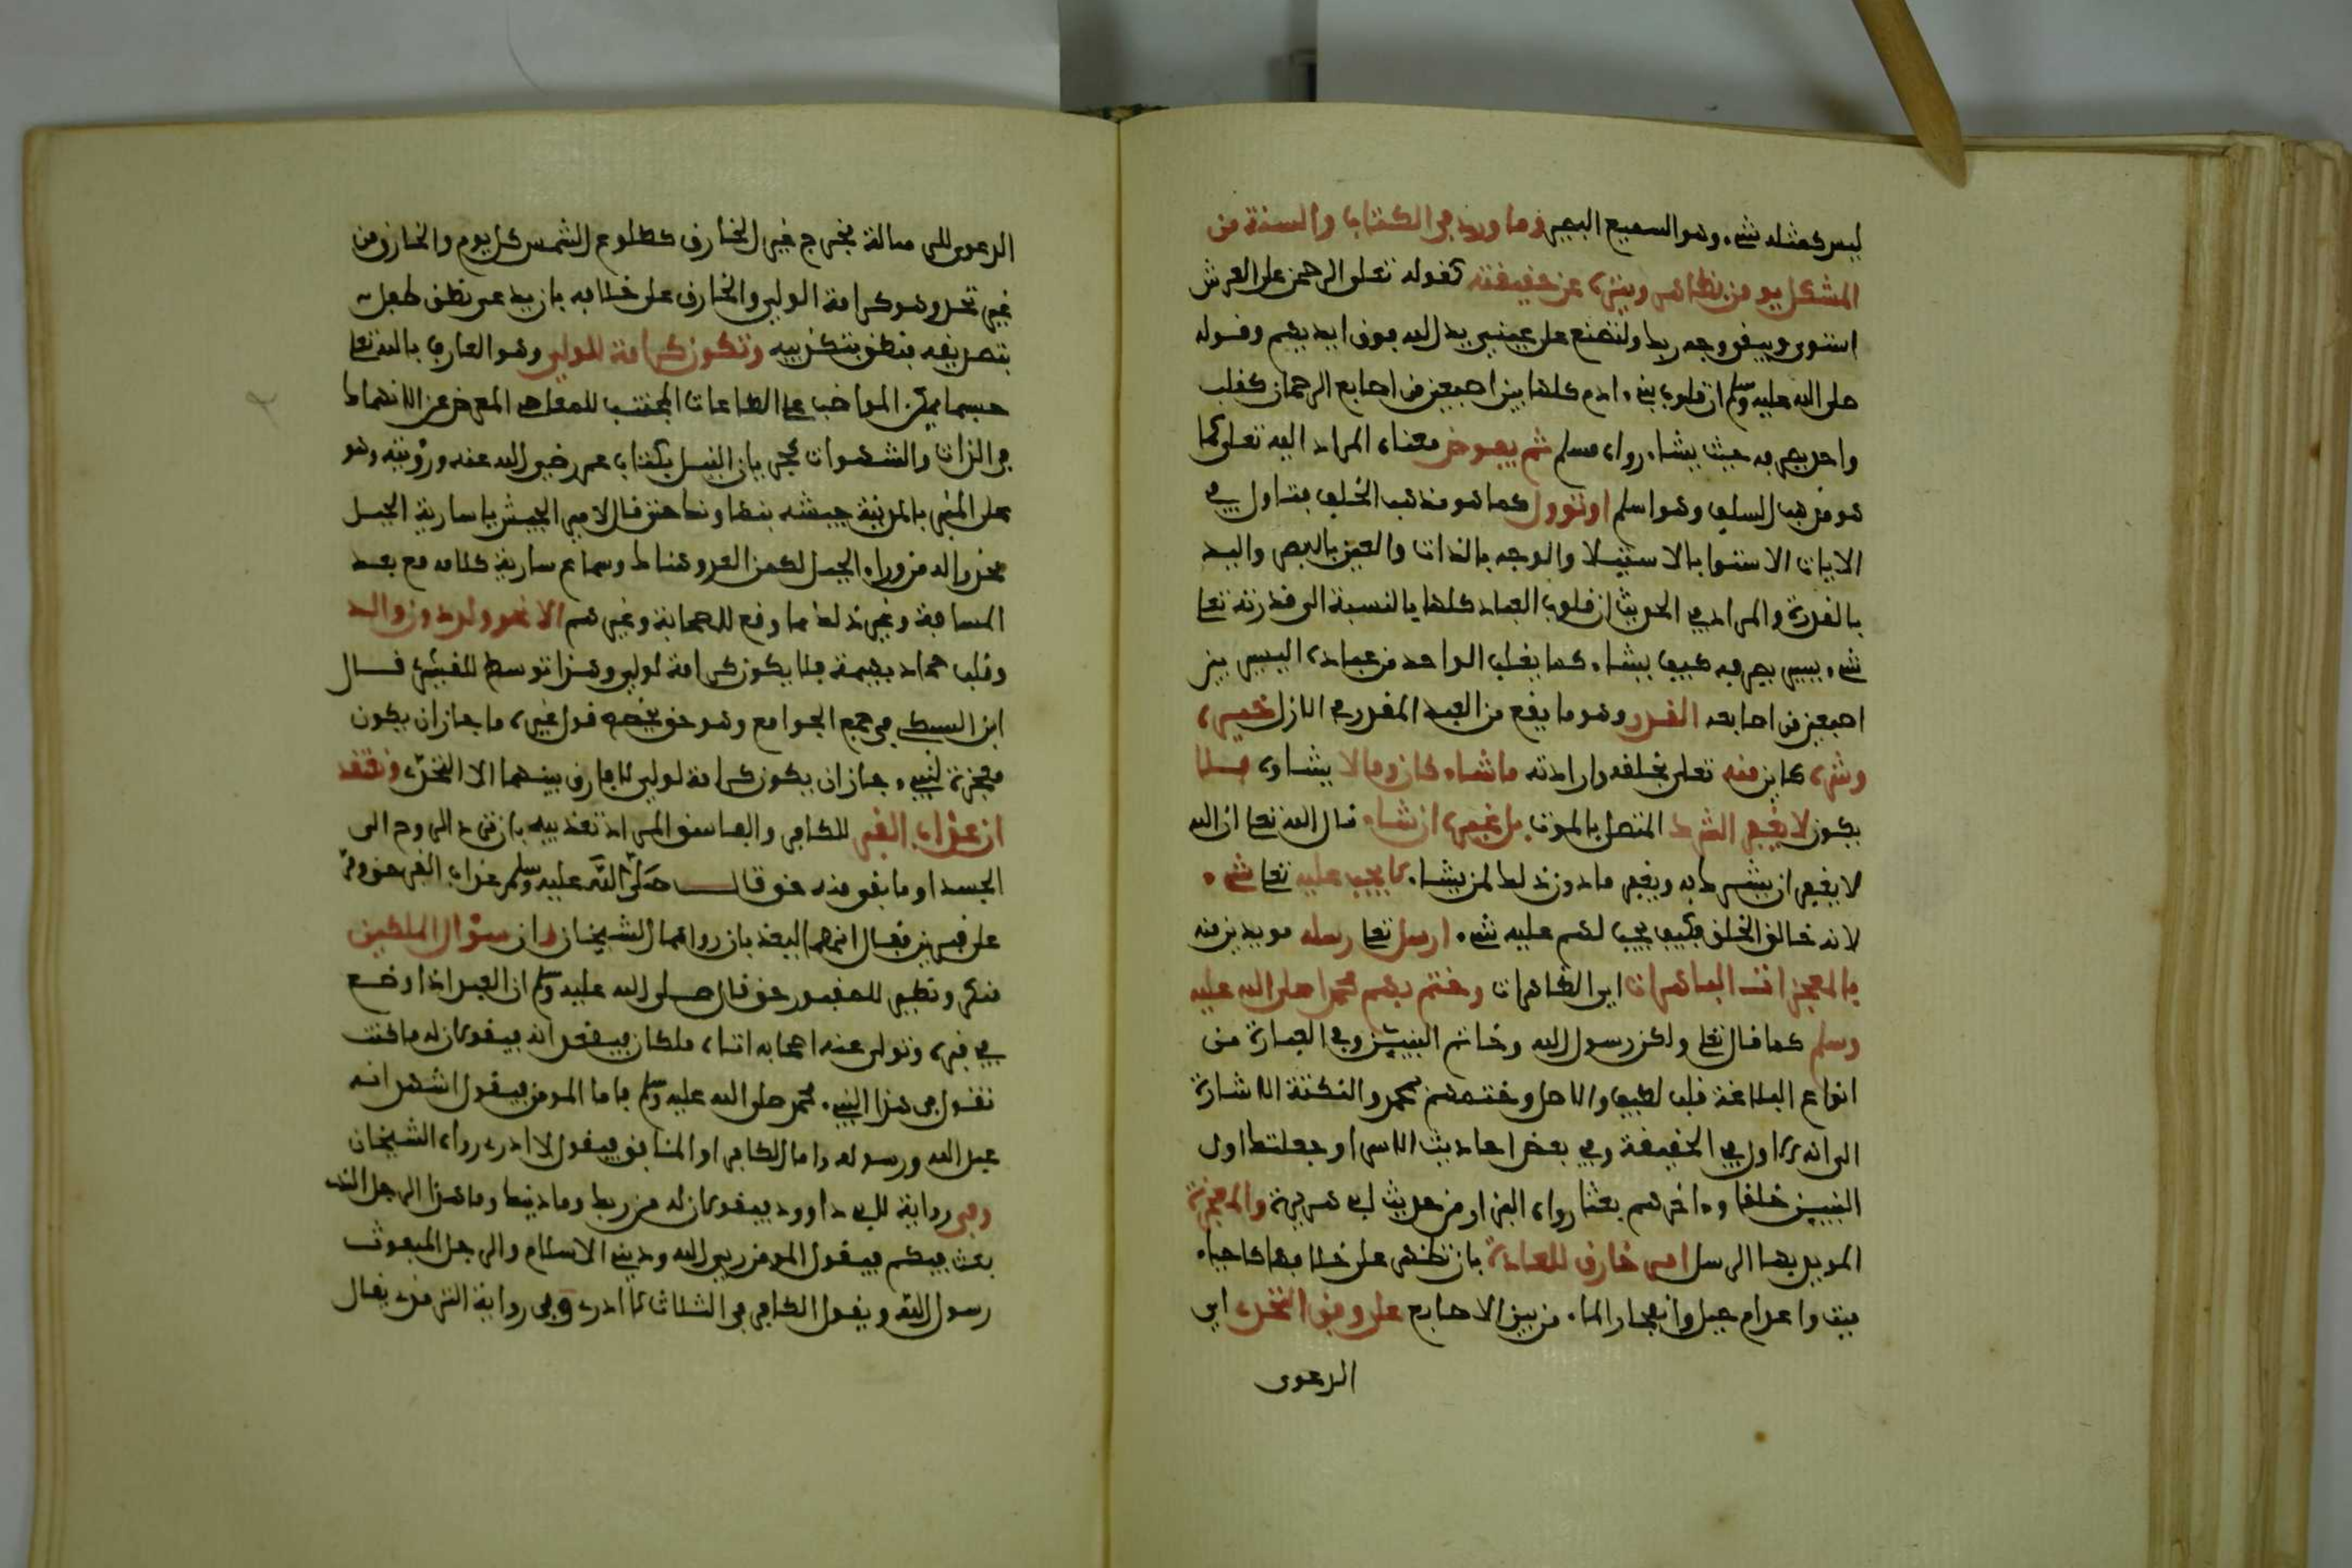 ليس كمثله شيء وهو السميع البصير وما ورد في الكتاب والسنة من
المشكل يومن بظاهره وينزه عن حقيقته كقوله تعلى الرحمن على العرش
استوى ويبقى وجه ربك ولتصنع على عيني يد الله فوق ايديهم وقوله
صلى الله عليه وسلم ان قلوب بني ءادم كلها بين اصبعين من اصابع الرحمان كقلب
واحد يصرفه حيث يشاء رواه مسلم ثم يفوض معناه المراد اليه تعلى كما
هو مذهب السلف وهو اسلم او نوول كما هو مذهب الخلف فتاول في
الايات الاستوا بالاستيلا والوجه بالذات والعين بالبصر واليد
بالقدرة والمراد في الحديث ان قلوب العباد كلها بالنسبة الى قدرته تعا
شيء يسير يصرفه كيف يشاء كما يقلب الواحد من عباده اليسير بين
اصبعين من اصابعه القدر وهو ما يقع من العبد المقدر في الازل خيره
وشره كاين منه تعلى بخلقه وارادته ما شاء كان وما لا يشاوه فلا
يكون لا يغفر الشرك المتصل بالموت بل غيره ان شاء قال الله تعا ان الله
لا يغفر ان يشرك به ويغفر ما دون ذلك لمن يشاء لا يجب عليه تعا شيء
لانه خالق الخلق فكيف يجب لهم عليه شيء ارسل تعا رسله مويدين منه
بالمعجزات الباهرات اي الظاهرات وختم بهم محمدا صلى الله عليه
وسلم كما قال تعلى ولكن رسول الله وخاتم النبيين وفي العبارة من
انواع البلاغة قلب لطيف والاصل وختمهم بمحمد والنكتة الاشارة
الى انه الاول في الحقيقة وفي بعض احاديث الاسرا وجعلتك اول
النبيين خلقا وءاخرهم بعثا رواه البزار من حديث ابي هريرة والمعجزة
المويد بها الرسل امر خارق للعادة بان تظهر على خلافها كاحياء
ميت واعدام جبل وانفجار الماء من بين الاصابع على وفق التحدي اي
الدعوى
الدعوى للرسالة فخرج غير الخارق كطلوع الشمس كل يوم والخارق من
غير تحد وهو كرامة الولي والخارق على خلافه بان يدعي نطق طفل
بتصديقه فينطق بتكذيبه وتكون كرامة للولي وهو العارف بالله تعا
حسبما يمكن المواظب على الطاعات المجتنب للمعاصي المعرض عن الانهماك
في اللذات والشهوات كجريان النيل بكتاب عمر رضي الله عنه ورؤيته وهو
على المنبر بالمدينة جيشه بنهاوند حتى قال لامير الجيش يا سارية الجبل
محذرا له من وراء الجبل لكمن العدو هناك وسماع سارية كلامه مع بعد
المسافة وغير ذلك مما وقع للصحابة وغيرهم الا نحو ولد دون والد
وقلب جماد بهيمة فلا يكون كرامة لولي وهذا توسط للقشيري قال
ابن السبكي في جمع الجوامع وهو حق يخصص قول غيره ما جاز ان يكون
معجزة لنبي جاز ان يكون كرامة لولي لا فارق بينهما الا التحدي ونعتقد
ان عذاب القبر للكافر والفاسق المراد تعذيبه بان ترد الروح الى
الجسد او ما بقي منه حق قال صلى الله عليه وسلم عذاب القبر حق ومر
على قبرين فقال انهما ليعذبان رواهما الشيخان وان سؤال الملكين
منكر ونكير للمقبور حق قال صلى الله عليه وسلم ان العبد اذا وضع
في قبره وتولى عنه اصحابه اتاه ملكان فيقعدانه فيقولان له ما كنت
تقول في هذا النبي محمد صلى الله عليه وسلم فاما المومن فيقول اشهد انه
عبد الله ورسوله واما الكافر او المنافق فيقول لا ادري رواه الشيخان
وفي رواية لابي داوود فيقولان له من ربك وما دينك وما هذا الرجل الذي
بعث فيكم فيقول المومن ربي الله وديني الاسلام والرجل المبعوث
رسول الله ويقول الكافر في الثلاث لا ادري وفي رواية الترمذي يقال